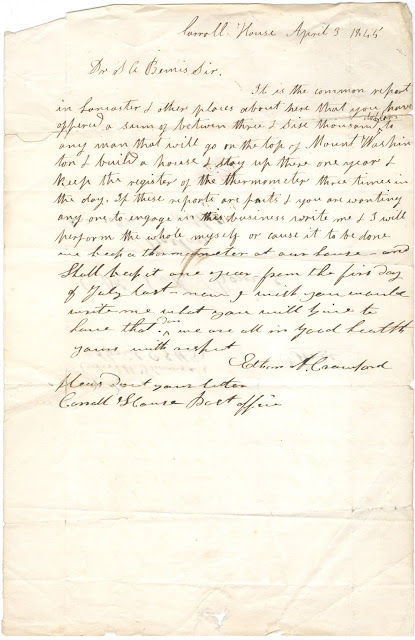 Carroll House April 3 1845
Dr S A Bemis Sir.
It is the common report
in Lancaster & other places about here that you have
offered a sum of betwen three & Six thousand dollars to
any man that will go on the top of Mount Washin
ton & build a house & stay up there one year &
keep the register of the thermometer three times in
the day. If these reports are facts & you are wanting
any one to engage in this business write me & I will
perform the whole myself or cause it to be done
we keep a thermometer at our house and
Shall keep it one year from the first day
of July last - now I wish you would
write me what you will give to
have that done we are all in good health
yours with respect
Ethan A. Crawford
pleas direct your letter
Carroll House Post office